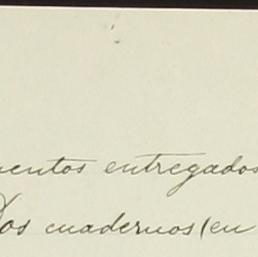 mentos entregados
Dos cuadernos (en